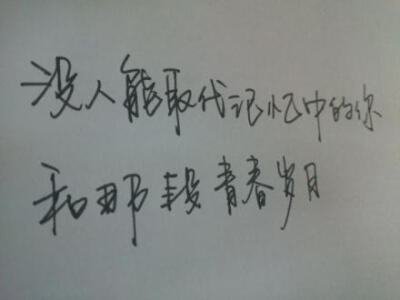 没人能取代记忆中的你
和那段青春岁月